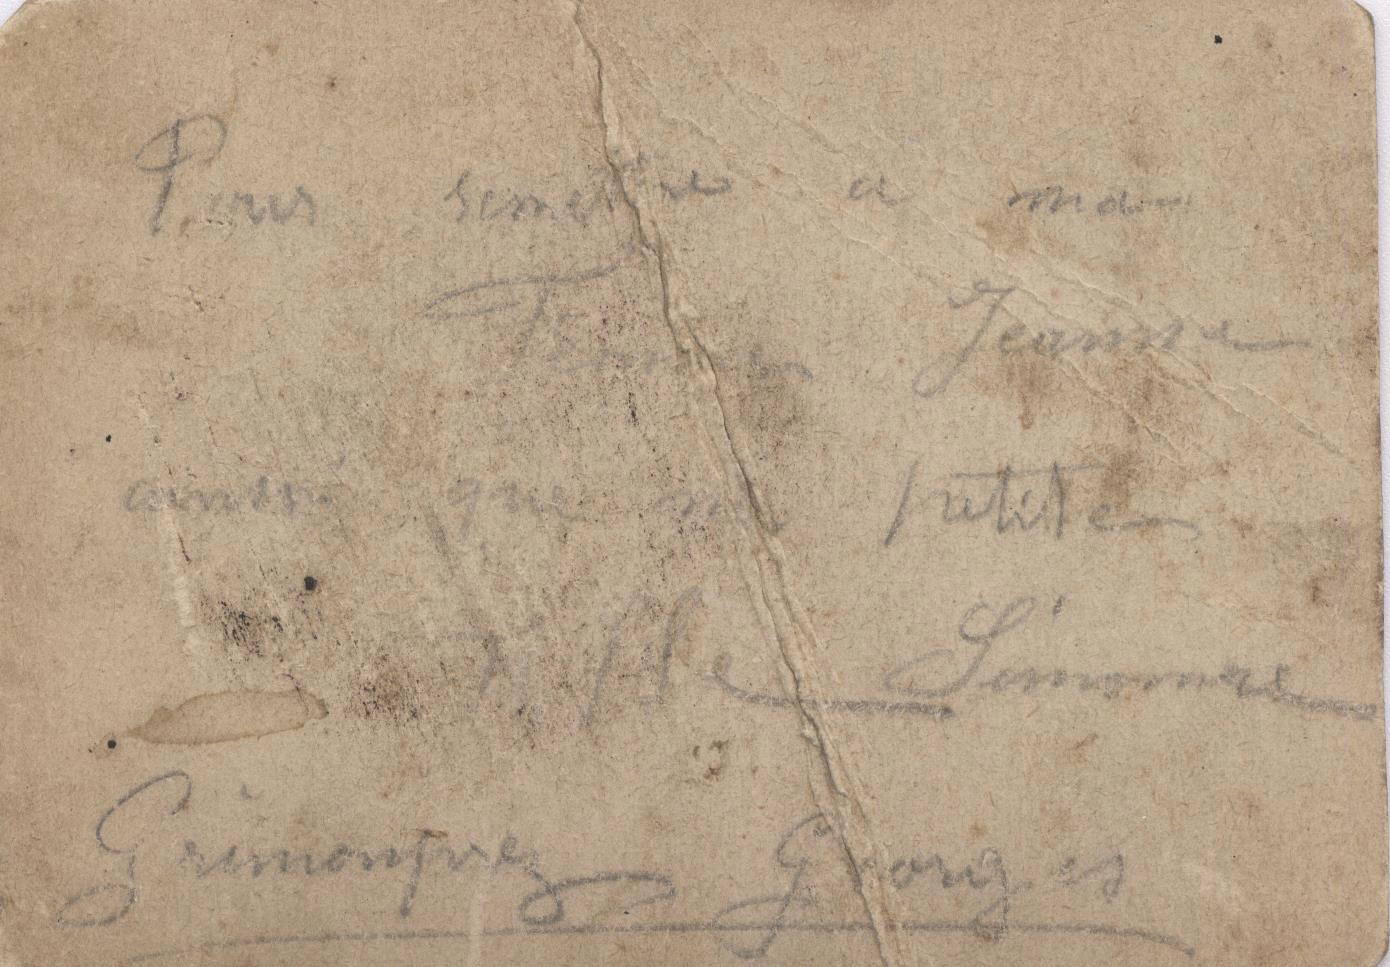 Pour remettre a ma
Femme Jeanne
ainsi que ma petite
fille Simonne
Grimonprez Georges